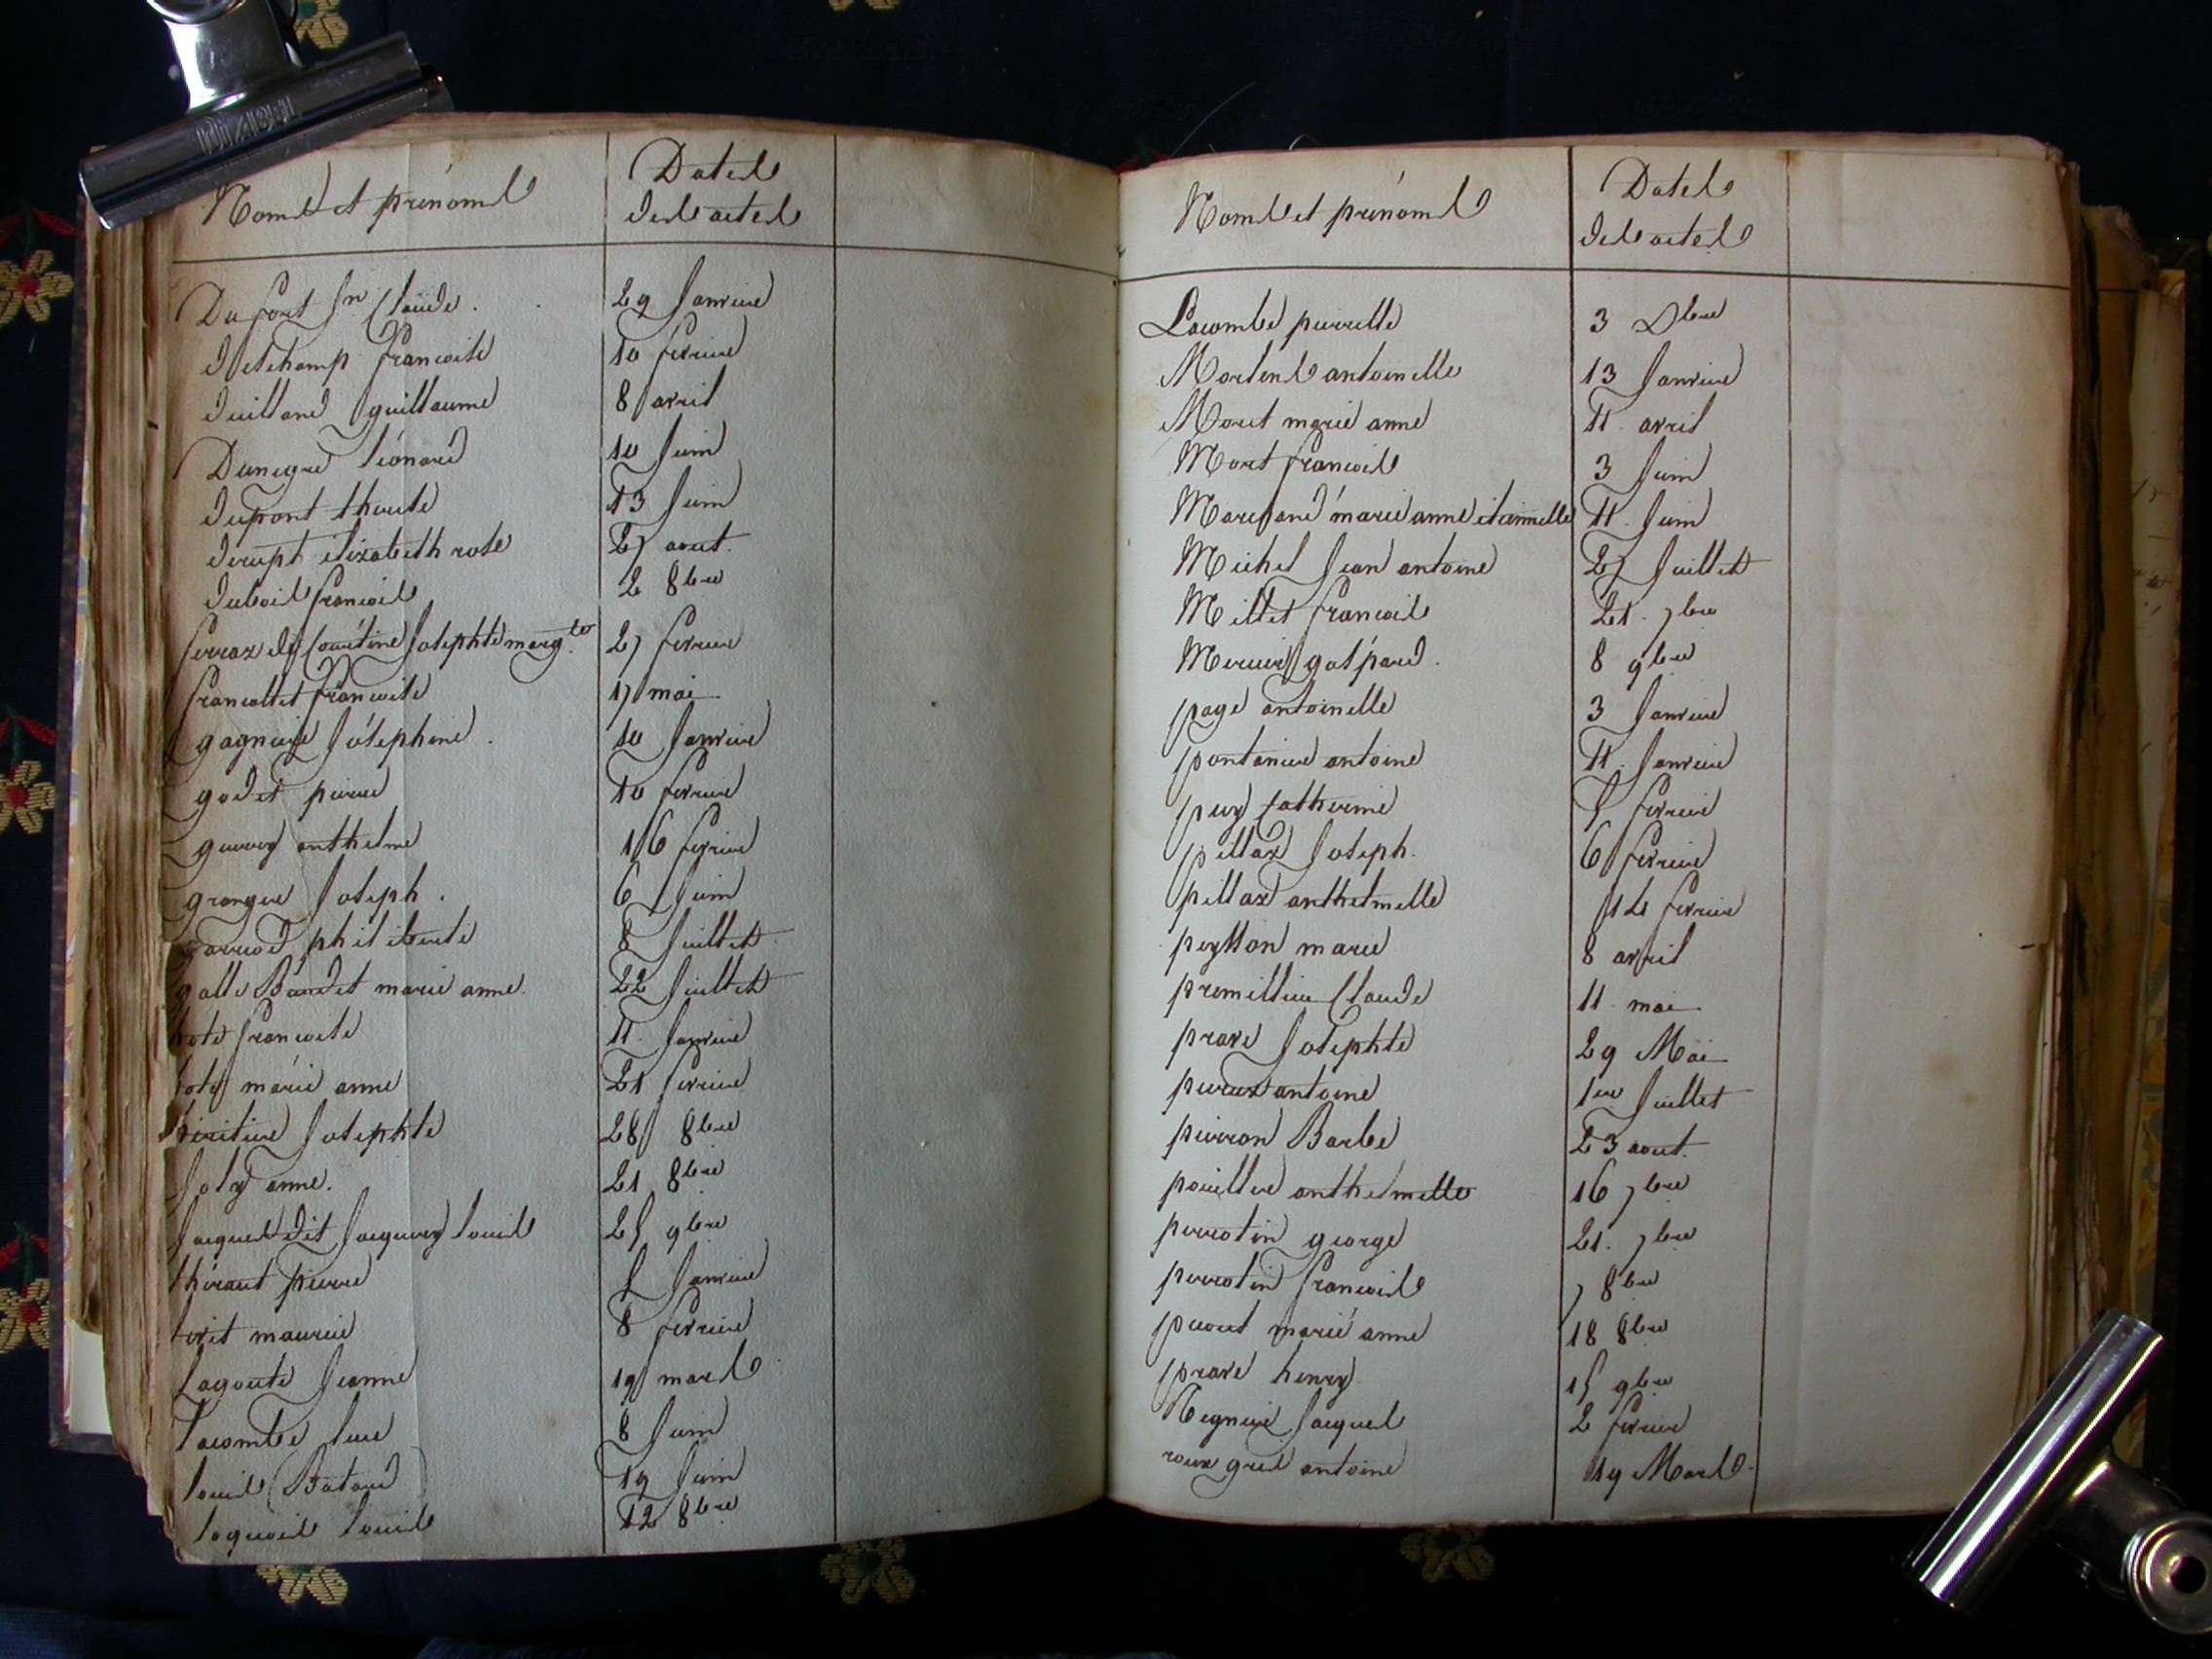 Noms et prénoms
Dates
des actes
Dufort Jn Claude. 29 Janvier
deschamp francoise 10 fevrier
guillaume 8 avril
Dunegre léonard 10 Juin
dupont 13 Juin
elizabeth rose 27 aout.
dubois francois 2 8bre
Josephte margte 27 fevrier
francoise 17 mai
gagniere Joséphine. 10 Janvier
godet pierre 10 fevrier
guerrey anthelme 16 fevrier
granger Joseph. 6 Juin
philiberte 8 Juillet
galle Baudet marie anne. 22 Juillet
francoise 11. Janvier
marie anne 21 fevrier
héritier Josephte 28 8bre
Joly anne. 21 8bre
Jacques dit Jacquery louis 25 9bre
pierre 5 Janvier
maurice 8 fevrier
Lagoute Jeanne 19 mars
lacombe luce 8 Juin
louis (Batard) 19 Juin
laquois louis 12 8bre
Noms et prénoms
Dates
des actes
Lacombe pierrette 3 Xbre
Martens antoinette 13 Janvier
Moret marie anne 11. avril
Moret francois 3 Juin
Marchand marie anne etiennette 11. Juin
Michel Jean antoine 27 Juillet
Millet francois 21. 7bre
Mercier gaspard. 8 9bre
page antoinette 3 Janvier
pontanier antoine 11. Janvier
pery Catherine 5 fevrier
pillaz Joseph. 6 fevrier
pillaz anthelmette 14 fevrier
peysson marie 8 avril
premillieu Claude 11. mai
prave Josephte 29 Mai
perret antoine 1er Juillet
pierron Barbe 23 aout.
pouillre anthelmette 16 7bre
perrotin george 21. 7bre
perrotin francois 7 8bre
marie anne 18 8bre
prave henry. 15 9bre
Regnier Jacques 2 fevrier
roux gres antoine 19 Mars.